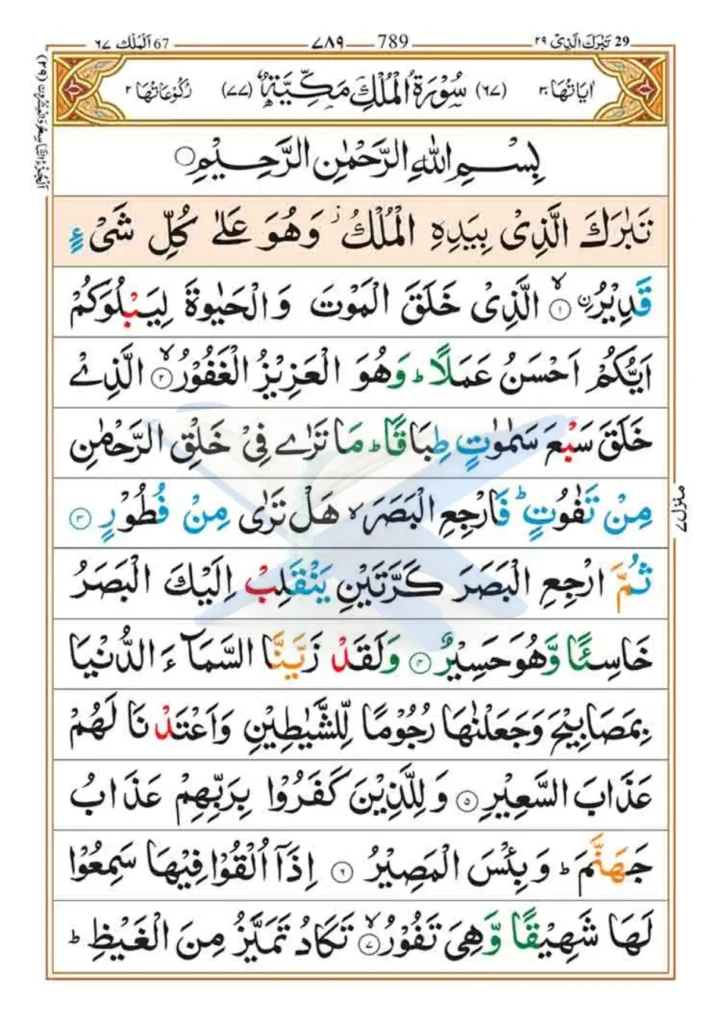 29 تَبٰرَكَ الَّذِیْ ٢٩
789 ٧٨٩
67 اَلْمُلْك ٦٧
اٰیَاتُهَا ٣٠
(٦٧) سُوْرَةُ الْمُلْكِ مَكِّیَّةٌ (٧٧)
رُكُوْعَاتُهَا ٢
بِسْمِ اللّٰهِ الرَّحْمٰنِ الرَّحِیْمِ ○
تَبٰرَكَ الَّذِیْ بِیَدِهِ الْمُلْكُ ؗ وَهُوَ عَلٰی كُلِّ شَیْءٍ
قَدِیْرُ ۣ ۙ﴿١﴾ الَّذِیْ خَلَقَ الْمَوْتَ وَالْحَیٰوةَ لِیَبْلُوَكُمْ
اَیُّكُمْ اَحْسَنُ عَمَلًا ؕ وَهُوَ الْعَزِیْزُ الْغَفُوْرُ ۙ﴿٢﴾ الَّذِیْ
خَلَقَ سَبْعَ سَمٰوٰتٍ طِبَاقًا ؕ مَا تَرٰی فِیْ خَلْقِ الرَّحْمٰنِ
مِنْ تَفٰوُتٍ ؕ فَارْجِعِ الْبَصَرَ ۙ هَلْ تَرٰی مِنْ فُطُوْرٍ ﴿٣﴾
ثُمَّ ارْجِعِ الْبَصَرَ كَرَّتَیْنِ یَنْقَلِبْ اِلَیْكَ الْبَصَرُ
خَاسِئًا وَّهُوَ حَسِیْرٌ ﴿٤﴾ وَلَقَدْ زَیَّنَّا السَّمَآءَ الدُّنْیَا
بِمَصَابِیْحَ وَجَعَلْنٰهَا رُجُوْمًا لِّلشَّیٰطِیْنِ وَاَعْتَدْنَا لَهُمْ
عَذَابَ السَّعِیْرِ ﴿٥﴾ وَلِلَّذِیْنَ كَفَرُوْا بِرَبِّهِمْ عَذَابُ
جَهَنَّمَ ؕ وَبِئْسَ الْمَصِیْرُ ﴿٦﴾ اِذَاۤ اُلْقُوْا فِیْهَا سَمِعُوْا
لَهَا شَهِیْقًا وَّهِیَ تَفُوْرُ ۙ﴿٧﴾ تَكَادُ تَمَیَّزُ مِنَ الْغَیْظِ ؕ
منزل ٧